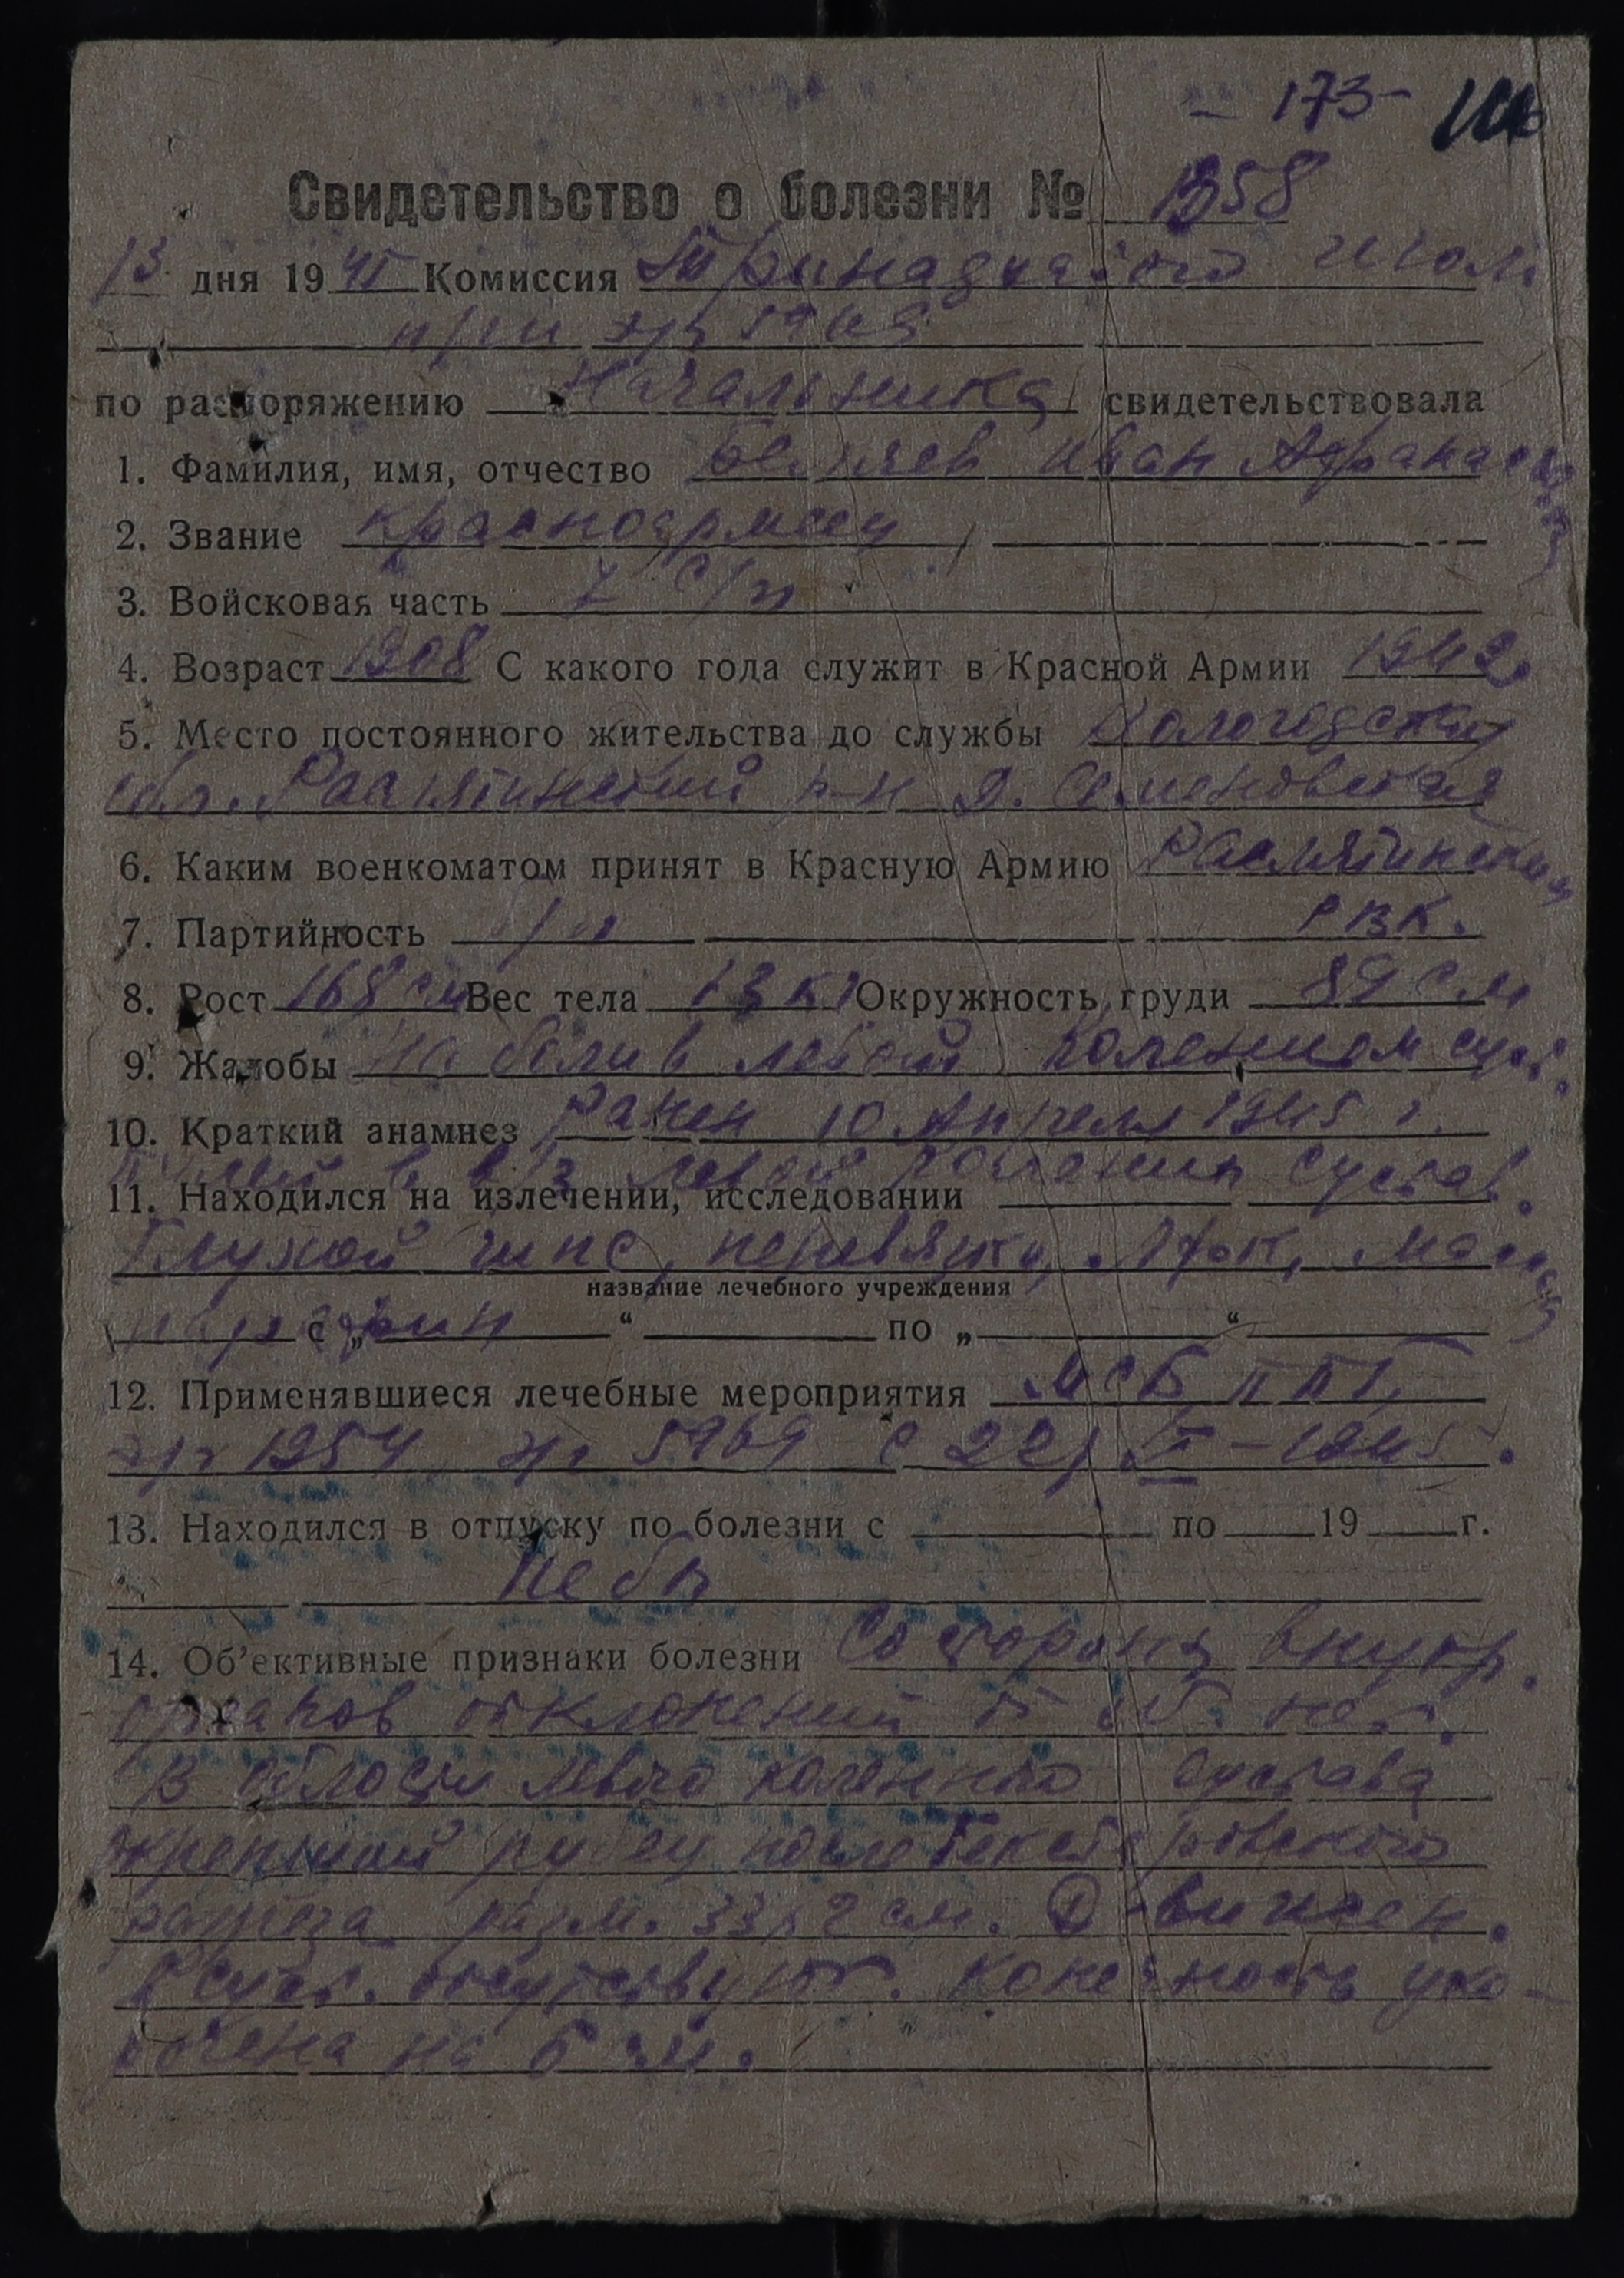 - 173 -
Свидетельство о болезни № 1358
13 дня 1945 Комиссия Тринадцатого июля
при эг 5969
по распоряжению Начальника свидетельствовала
1. Фамилия, имя, отчество Беляев Иван Афанасьевич
2. Звание красноармеец
3. Войсковая часть 7 с/п
4. Возраст 1908 С какого года служит в Красной Армии 1942
5. Место постоянного жительства до службы Вологодская
обл. Рослятинский р-н д. Семеновская
6. Каким военкоматом принят в Красную Армию Рослятинским
7. Партийность б/п РВК.
8. Рост 168 см Вес тела кг Окружность груди 89 см
9. Жалобы На боли в левом коленном суст.
10. Краткий анамнез Ранен 10 Апреля 1945 г.
пулей в левой сустав.
11. Находился на излечении, исследовании
Глухой гипс, перевязки, ЛФК,
название лечебного учреждения
парафин с „ “ по „ “
12. Применявшиеся лечебные мероприятия МСБ, ППГ,
эг 1954, эг 5969 с 22/
13. Находился в отпуску по болезни с по 19 г.
Не был
14. Об'ективные признаки болезни Со стороны внутр.
органов отклонений от нет.
В области левого коленного сустава
крепкий рубец после Тексторовского
разреза разм. 33х2 см. Движен.
в суст. отсутствуют. Конечность уко-
рочена на 5 см.